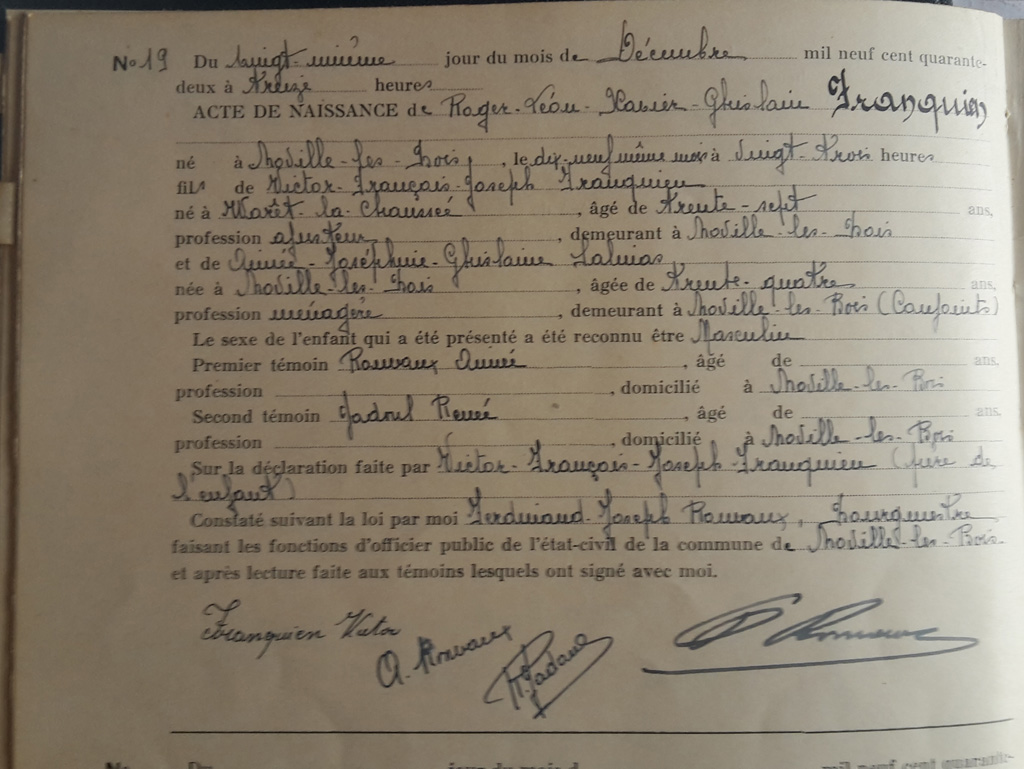 No 19 Du vingt-unième jour du mois de Décembre mil neuf cent quarante-
deux à treize heures
ACTE DE NAISSANCE de Roger-Léon-Xavier-Ghislain Franquien
né à Noville-les-Bois, le dix-neuf même mois à vingt-trois heures
fils de Victor-François-Joseph Franquien
né à Marêt-la-Chaussée, âgé de trente-sept ans,
profession ajusteur, demeurant à Noville-les-Bois
et de Aimée-Joséphine-Ghislaine
née à Noville-les-Bois, âgée de trente-quatre ans,
profession ménagère, demeurant à Noville-les-Bois (Conjoints)
Le sexe de l'enfant qui a été présenté a été reconnu être Masculin
Premier témoin Rouvaux Aimé, âgé de ans.
profession, domicilié à Noville-les-Bois
Second témoin Jadoul René, âgé de ans.
profession, domicilié à Noville-les-Bois
Sur la déclaration faite par Victor-François-Joseph-Franquien (père de
l'enfant)
Constaté suivant la loi par moi Ferdinand-Joseph Rouvaux, bourgmestre
faisant les fonctions d'officier public de l'état-civil de la commune de Noville-les-Bois
et après lecture faite aux témoins lesquels ont signé avec moi.
Franquien Victor
A. Rouvaux
R. Jadoul
No Du jour du mois d mil neuf cent quarante-